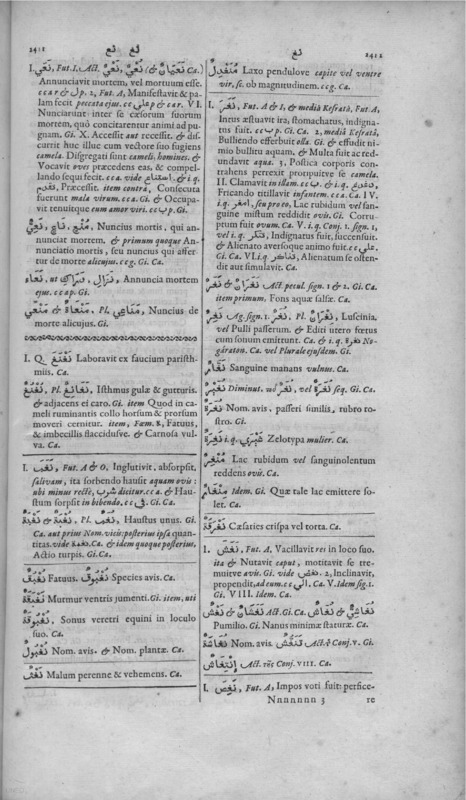 2411 نع نغ
I. نَعَى, Fut. I. Act. نَعْيٌ, نَعِيٌّ (& نُعْيَانٌ Ca.)
Annunciavit mortem, vel mortuum esse.
cc a r & ل p. 2, Fut. A, Manifestavit & pa-
lam fecit peccata ejus. cc على p & ar. VI.
Nunciarunt inter se cæsorum suorum
mortem, quò concitarentur animi ad pug-
nam. Gi. X. Accessit aut recessit. & dis-
currit huc illuc cum vectore suo fugiens
camela. Disgregati sunt cameli, homines. &
Vocavit oves præcedens eas, & compel-
lando sequi fecit. cc a. vide & i. q.
تقدم, Præcessit. item contrà, Consecuta
fuerunt mala virum. cc a. Gi. & Occupa-
vit tenuitque eum amor viri. cc ب p. Gi.
Nuncius mortis, qui an-
nunciat mortem, & primum quoque An-
nunciatio mortis, seu nuncius qui affer-
tur de morte alicujus. cc g. Gi. Ca.
نَعَاءِ, ut نَزَالِ, Annuncia mortem
ejus. cc ap. Gi.
& Pl. مَنَاعِي, Nuncius de
morte alicujus. Gi.
I. Q. نَغْنَغَ Laboravit ex faucium paristh-
miis. Ca.
نُغْنُغٌ, Pl. نَغَانِغُ, Isthmus gulæ & gutturis.
& adjacens ei caro. Gi. item Quod in ca-
meli ruminantis collo horsum & prorsum
moveri cernitur. item, Fœm. ة, Fatuus,
& imbecillis flaccidusve. & Carnosa vul-
va. Ca.
I. نَغَبَ, Fut. A & O, Inglutivit, absorpsit,
salivam, ita sorbendo hausit aquam ovis:
ubi minus rectè, شرب dicitur. cc a. & Hau-
stum sorpsit in bibendo. cc في. Gi. Ca.
نَغْبَةٌ & نُغْبَةٌ, Pl. نُغَبٌ, Haustus unus. Gi.
Ca. aut prius Nom. vicis: posterius ipsa quan-
titas. vide Ca. & idem quoque posterius,
Actio turpis. Gi. Ca.
Fatuus. Species avis. Ca.
Murmur ventris jumenti. Gi. item, uti
Sonus veretri equini in loculo
suo. Ca.
Nom. avis. & Nom. plantæ. Ca.
Malum perenne & vehemens. Ca.
نغ 2412
Laxo pendulove capite vel ventre
vir, sc. ob magnitudinem. cc g. Ca.
I. نَغَرَ, Fut. A & I, & mediâ Kesratâ, Fut. A,
Intus æstuavit ira, stomachatus, indigna-
tus fuit. cc ب p. Gi. Ca. 2, mediâ Kesratâ,
Bulliendo efferbuit olla. Gi. & effudit ni-
mio bullitu aquam, & Multa fuit ac red-
undavit aqua. 3, Postica corporis con-
trahens perrexit propinquitve se camela.
II. Clamavit in illam. cc ب. & i. q.
Fricando titillavit infantem. cc a. Ca. IV.
i. q. أمغر, seu pro eo, Lac rubidum vel san-
guine mistum reddidit ovis. Gi. Corrup-
tum fuit ovum. Ca. V. i. q. Conj. 1. sign. 1,
vel i. q. تنكر, Indignatus fuit, succensuit.
& Alienato aversoque animo fuit. cc على.
Gi. Ca. VI. i. q. تناكر, Alienatum se osten-
dit aut simulavit. Ca.
& Act. pecul. sign. 1 & 2. Gi. Ca.
item primum. Fons aquæ salsæ. Ca.
نُغَرٌ Ag. sign. 1. نُغَرٌ, Pl. نِغْرَانٌ, Luscinia,
vel Pulli passerum. & Editi utero fœtus
cum sonum emittunt. Ca. & i. q. No-
garaton. Ca. vel Plurale ejusdem. Gi.
Sanguine manans vulnus. Ca.
Diminut. vel نُغَرٌ vel seq. Gi. Ca.
نُغَرَةٌ Nom. avis, passeri similis, rubro ro-
stro. Gi.
i. q. غَيْرَى Zelotypa mulier. Ca.
Lac rubidum vel sanguinolentum
reddens ovis. Ca.
Idem. Gi. Quæ tale lac emittere so-
let. Ca.
Cæsaries crispa vel torta. Ca.
I. نَغَشَ, Fut. A. Vacillavit res in loco suo.
ita & Nutavit caput, motitavit se tre-
muitve avis. Gi. vide نغض. 2, Inclinavit,
propendit, ad eum. cc إلى. Ca. V. Idem sig. 1.
Gi. VIII. Idem. Ca.
Act. Gi. Ca. &
Pumilio. Gi. Nanus minimæ staturæ. Ca.
Nom. avis. تَنَغُّشٌ Act. ؟ Conj. V. Gi.
اِنْتِغَاشٌ Act. τȣ̃ Conj. VIII. Ca.
I. نَغَصَ, Fut. A, Impos voti fuit: perfice-
Nnnnnnn 3 re